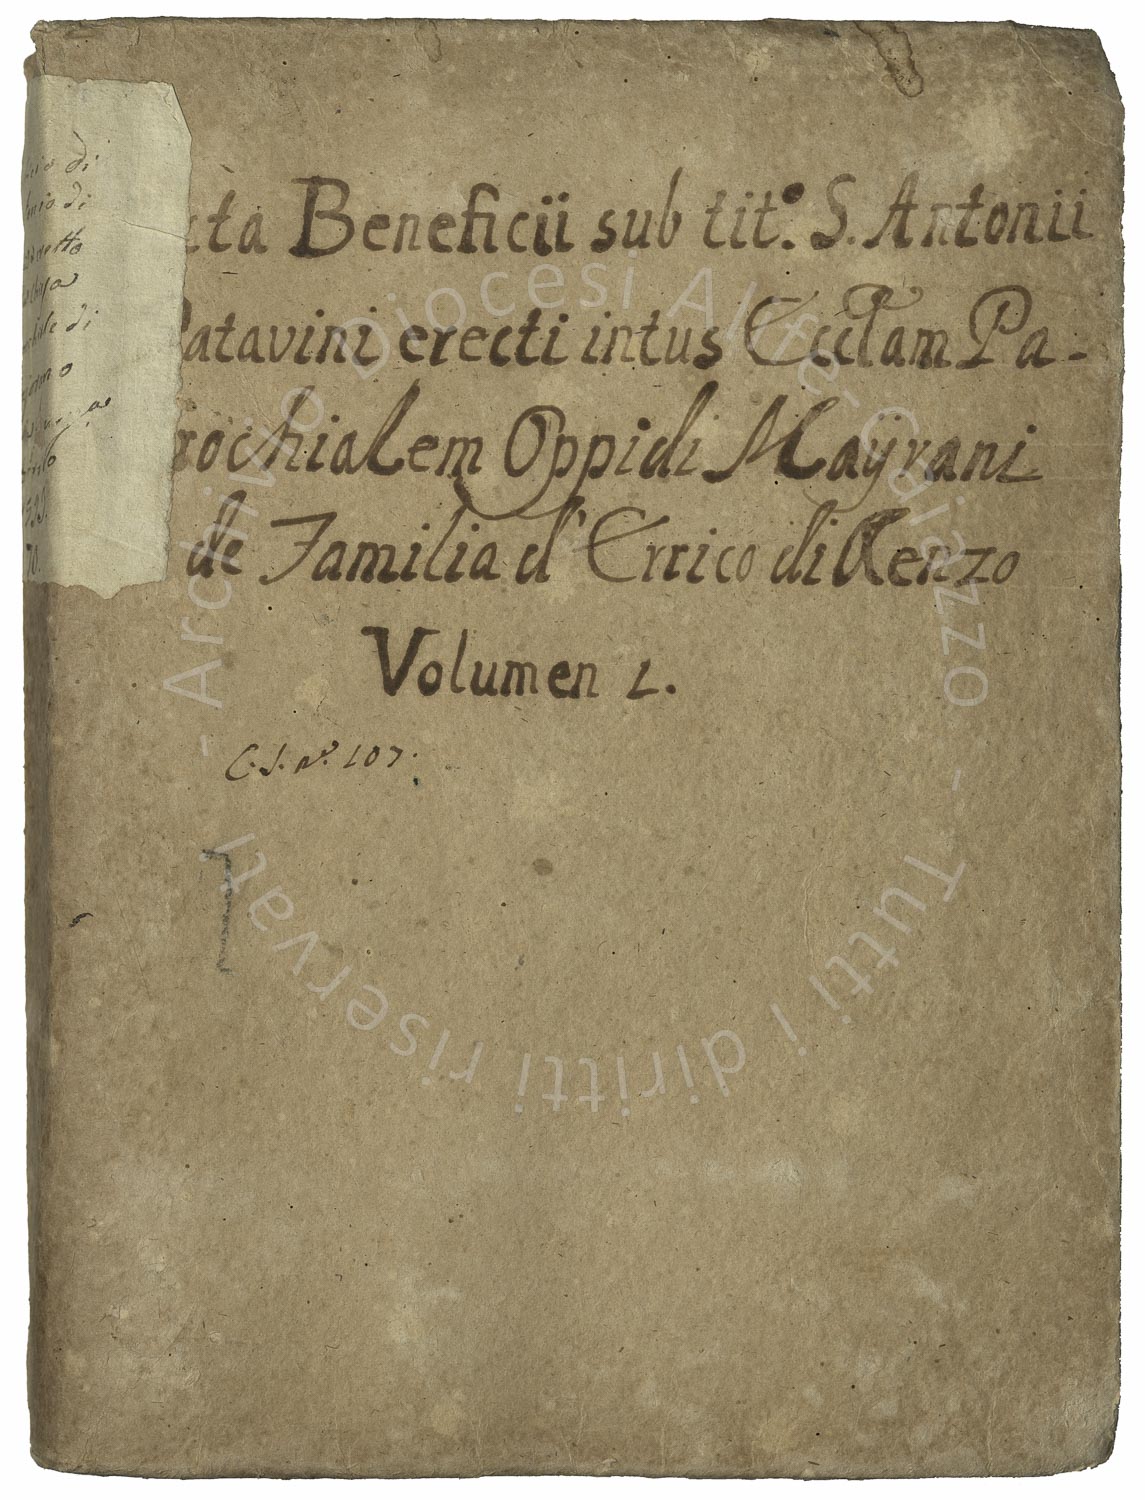 cta Beneficii sub tit.º S. Antonii
Patavini erecti intus Eccl̃am Pa-
rochialem Oppidi Mayrani
de Familia d'Errico di Renzo
Volumen 1.
C.S. nº. 107.
di
di
di
Archivio Diocesi Alife-Caiazzo - Tutti i diritti riservati -